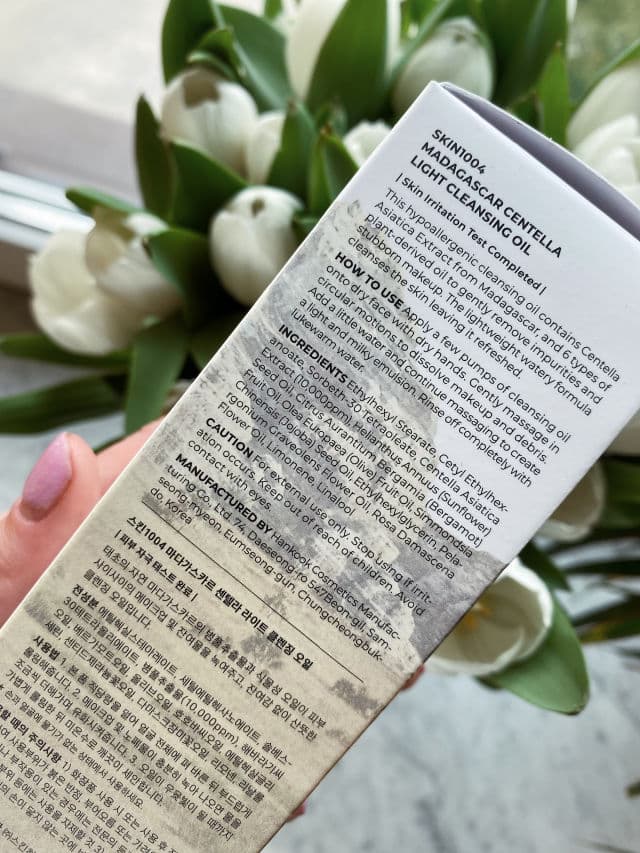 SKIN1004
MADAGASCAR CENTELLA
LIGHT CLEANSING OIL
| Skin Irritation Test Completed |
This hypoallergenic cleansing oil contains Centella
Asiatica Extract from Madagascar, and 6 types of
plant-derived oil to gently remove impurities and
stubborn makeup. The lightweight watery formula
cleanses the skin leaving it refreshed
HOW TO USE Apply a few pumps of cleansing oil
onto dry face with dry hands. Gently massage in
circular motions to dissolve makeup and debris.
Add a little water and continue massaging to create
a light and milky emulsion. Rinse off completely with
lukewarm water.
INGREDIENTS Ethylhexyl Stearate, Cetyl Ethylhex-
anoate, Sorbeth-30 Tetraoleate, Centella Asiatica
Extract (10,000ppm), Helianthus Annuus (Sunflower)
Seed Oil, Citrus Aurantium Bergamia (Bergamot)
Fruit Oil, Olea Europaea (Olive) Fruit Oil, Simmondsia
Chinensis (Jojoba) Seed Oil, Ethylhexylglycerin, Pela-
rgonium Graveolens Flower Oil, Rosa Damascena
Flower Oil, Limonene, Linalool
CAUTION For external use only. Stop using if irrit-
ation occurs. Keep out of reach of children. Avoid
contact with eyes.
MANUFACTURED BY Hankook Cosmetics Manufac-
turing Co., Ltd. 74, Daeseong-ro 547beon-gil, Sam-
seong-myeon, Eumseong-gun, Chungcheongbuk-
do, Korea
스킨1004 마다가스카르 센텔라 라이트 클렌징 오일
| 피부 자극 테스트 완료 |
태초의 자연 마다가스카르의 병풀추출물과 식물성 오일이 피부
사이사이의 메이크업 및 잔여물을 녹여주고, 잔여감 없이 산뜻한
클렌징 오일입니다.
전성분 에틸헥실스테아레이트, 세틸에틸헥사노에이트, 솔베스-
30테트라올리에이트, 병풀추출물(10,000ppm), 해바라기씨
오일, 베르가모트오일, 올리브오일, 호호바씨오일, 에틸헥실글리
세린, 센티드제라늄꽃오일, 다마스크장미꽃오일, 리모넨, 리날룰
사용법 1.